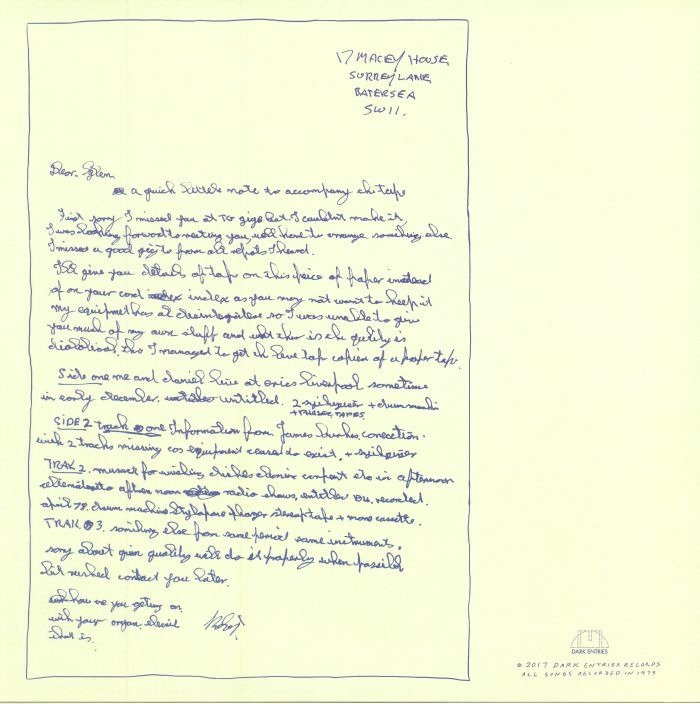 17 MACEY HOUSE
SURREY LANE
BATERSEA
SW11.
Dear. Glen.
a quick little note to accompany the tape
First sorry I missed you at TG gigs but I couldn't make it,
I was looking forward to meeting you, will have to arrange something else.
I missed a good gig to from all repots I heard.
I'll give you details of tape on this peice of paper instead
of on your card index as you may not want to keep it
my equipmet has at so I was unable to give
you much of my own stuff and what ther is the quality is
diabolical, tho I managed to get the tap copies of a tape.
Side one me and daniel live at erics liverpool sometime
in early december. untitled. 2 + drum machin
+ TAPES
SIDE 2 track one Information from James conection.
with 2 tracks missing cos equipment ceased to exist, +
TRAK 2. for dishes etc in afternoon
after noon radio shows, recorded.
april 78. drum machine Stylapone phazer tape + mono cassette.
TRAK 3. somthing else from same period same instruments.
sorry about quality will do it properly when possible
bit rushed contact you later.
how are you geting on
with your organ.
that is.
DARK ENTRIES
© 2017 DARK ENTRIES RECORDS
ALL SONGS RECORDED IN 1979